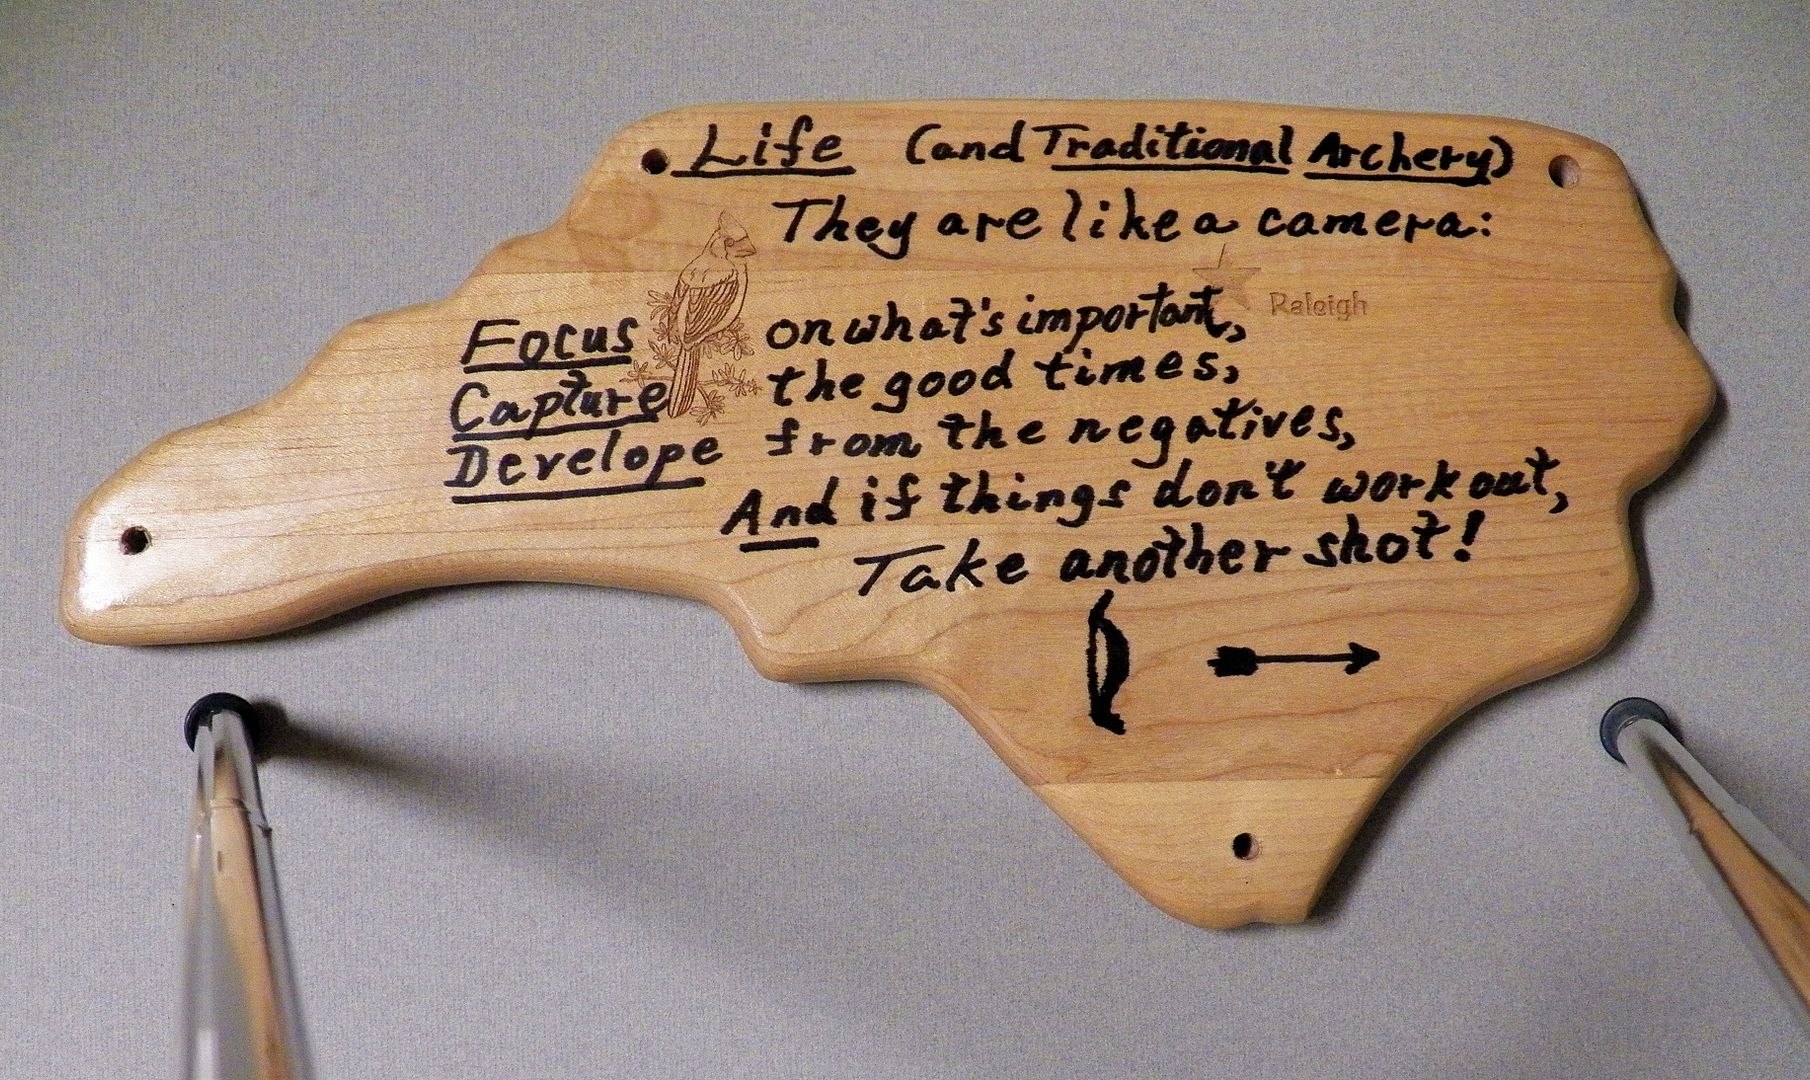 Life (and Traditional Archery)
They are like a camera:
Raleigh
Focus on what's important,
Capture the good times,
Develope from the negatives,
And if things don't work out,
Take another shot!